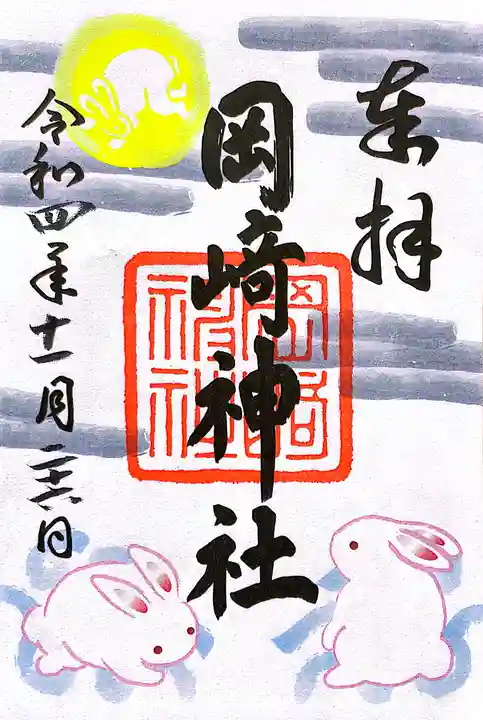 奉拝
岡崎神社
岡崎神社
令和四年十一月二十六日